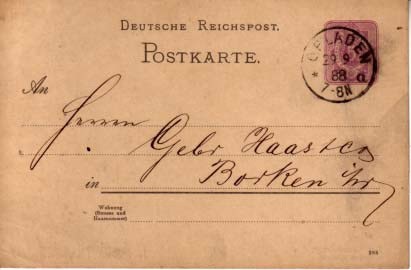 DEUTSCHE REICHSPOST.
POSTKARTE.
OPLADEN
29 9
88
7-8N
An
Herren
Gebr Haas & Co
in Borken
Wohnung
(Strasse und
Hausnummer)